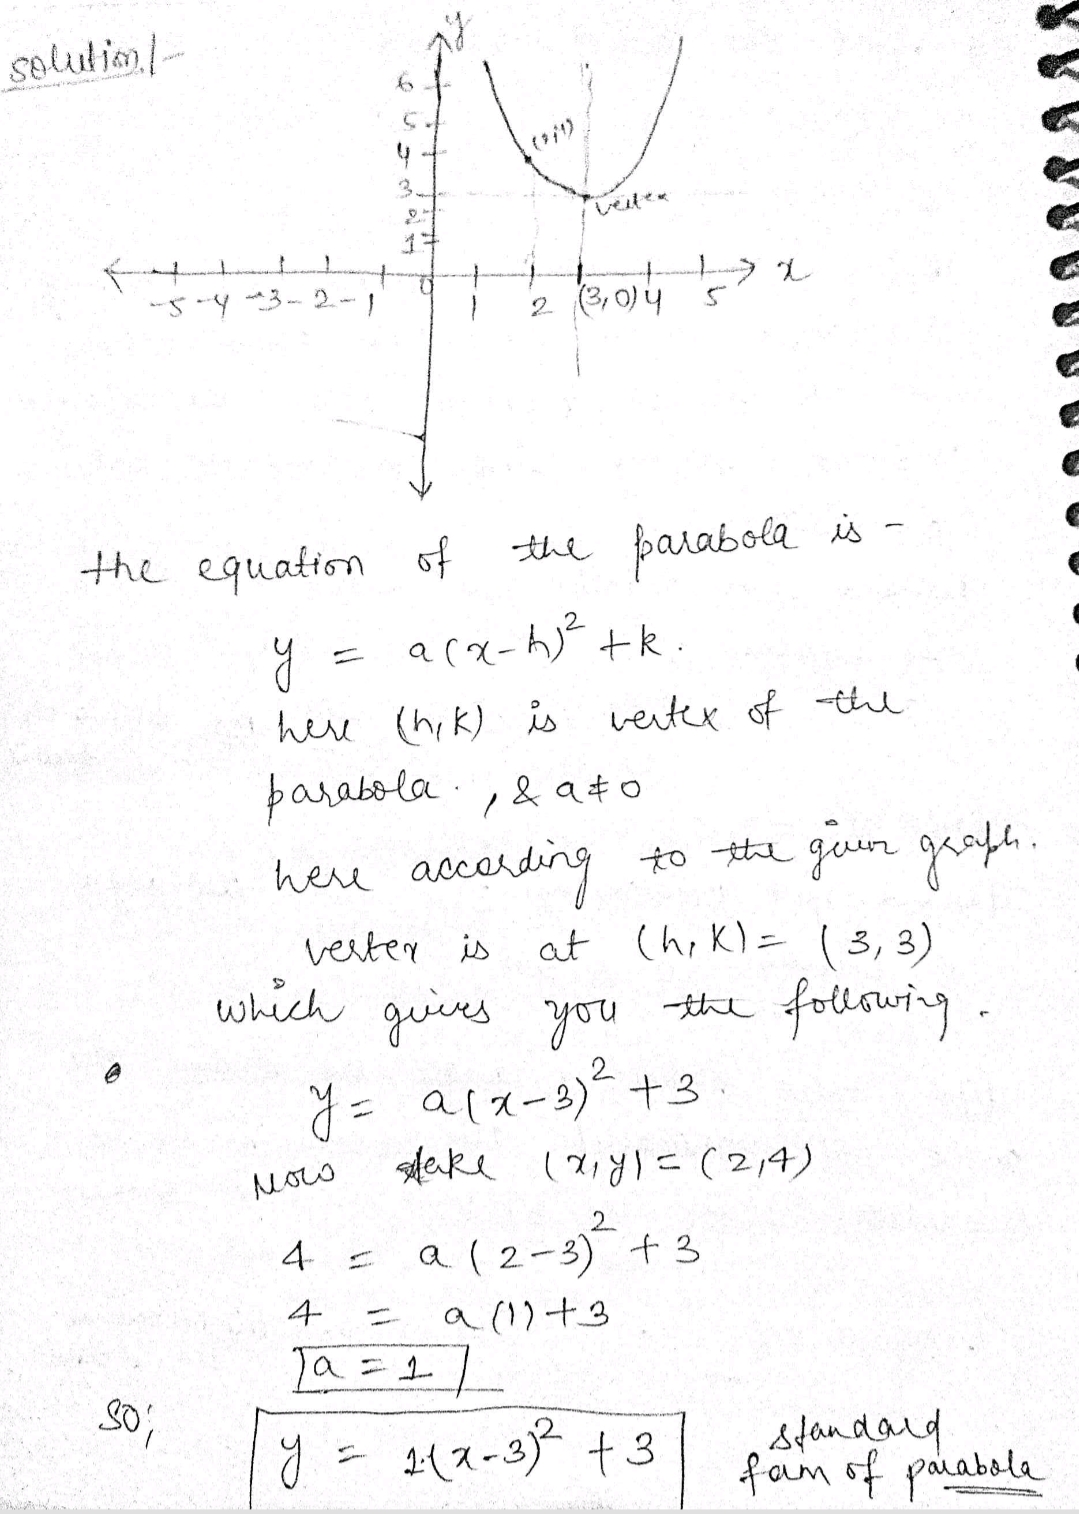 solution/-
y
6
5
4
3
2
1
(2,4)
vertex
x
-5 -4 -3 -2 -1 0 1 2 (3,0) 4 5
the equation of the parabola is -
y = a(x-h)² +k.
here (h,k) is vertex of the
parabola. , & a≠0
here according to the given graph.
vertex is at (h,k) = (3,3)
which gives you the following.
y = a(x-3)² +3.
Now take (x,y) = (2,4)
4 = a(2-3)² +3
4 = a(1)+3
a = 1
so;
y = 1·(x-3)² +3
standard
form of parabola